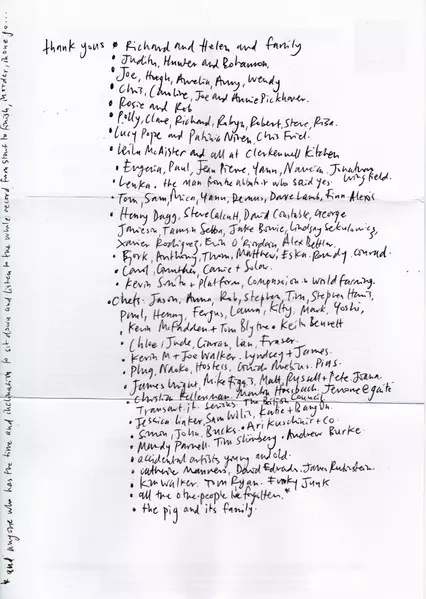 thank yous • Richard and Helen and family
• Judith, Hunter and Bohannon.
• Joe, Hugh, Amelia, Amy, Wendy
• Chris, Caroline, Joe and Annie Pickhaver.
• Rosie and Rob
• Polly, Clare, Richard, Robyn, Robert, Steve, Risa.
• Lucy Pope and Patricia Niven, Chris Friel.
• Leila McAister and all at Clerkenwell Kitchen
• Evgenia, Paul, Jean Pierre, Yann, Jonathan
Wingfeld.
• Lenka. the man from the abattoir who said yes.
• Tom, Sam, Mica, Yann, Dave Lamb, Finn Alexis
• Henny Dagg, Steve Calcutt, David George
Jamieson, Tamsin Jake Bowie, Lindsay
Xavier Rodriguez, Erin O'Riordain, Alex
• Bjork, Anthony, Thom, Matthew, Eska. Randy Conrad.
• Carol, Camie + Solar.
• Kevin Smith + Platform, Compassion in world farming.
• Chefs. Jason, Anna, Rob, Stephen, Tim, Stephen Harris,
Paul, Henny, Fergus, Laura, Kitty, Mark, Yoshi,
Kevin McFadden + Tom Blythe • Keith Bennett
• Chloe, Jude, Ciaran, Ian, Fraser.
• Kevin M + Joe Walker. Lyndsey + James.
• Plug, Naoko, Hostess, Pias.
• James Wright, Mike Figgis, Matt, Russell + Pete. Joana.
• Christian Kellerman. Jerome
Transart it. The British Council
• Jessica Linker, Sam Willis, Katie +
• Simon, John, Bucks. • Ari + Co.
• Mandy Parnell. Tim • Andrew Burke
• accidental artists young and old.
• Catherine Manners, David Edwards. James Rubinstein.
• Kim Walker. Tom Ryan. Funky Junk
• all the other people ive forgotten.*
• the pig and its family.
* and anyone who has the time and inclination to sit down and listen to the whole record from start to finish, in order, in one go...